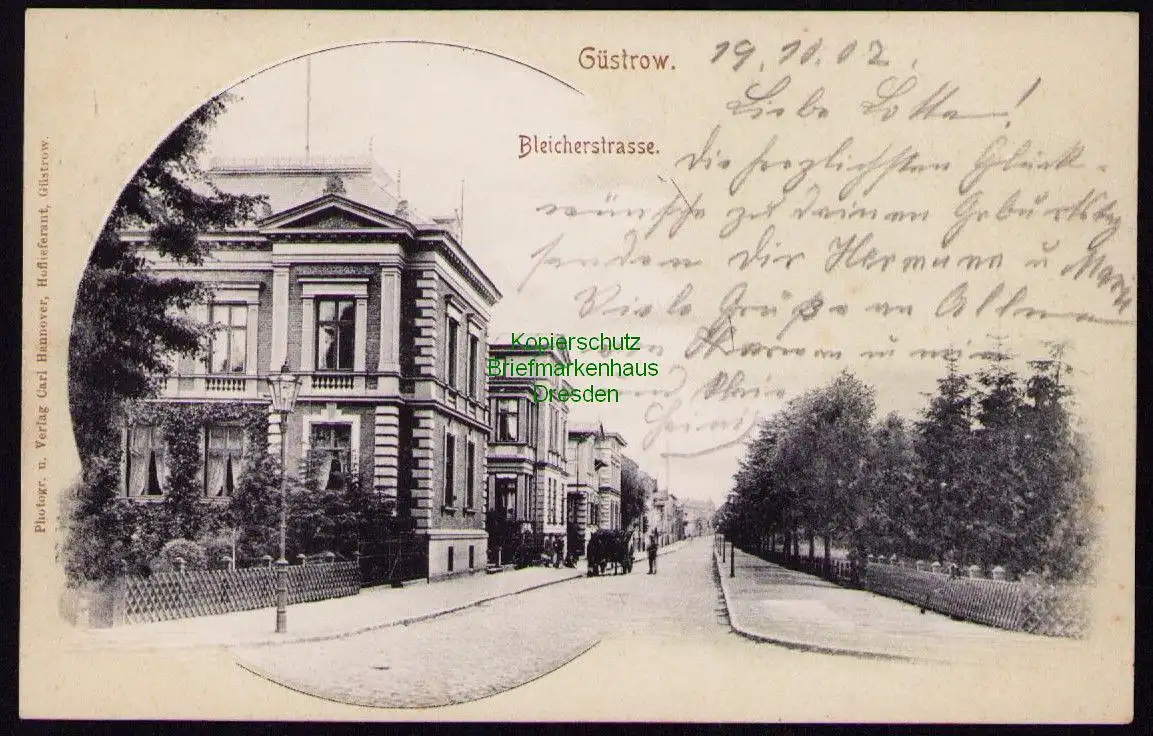 Güstrow.
19.10.02.
Liebe Lotte!
Bleicherstrasse.
Die herzlichsten Glück-
wünsche zu Deinen Geburtstag
senden Dir Hermann u Marie
Viele Grüße an Alle
von Mama u
und klein
Photogr. u. Verlag Carl Hannover, Hoflieferant, Güstrow.
Kopierschutz
Briefmarkenhaus
Dresden